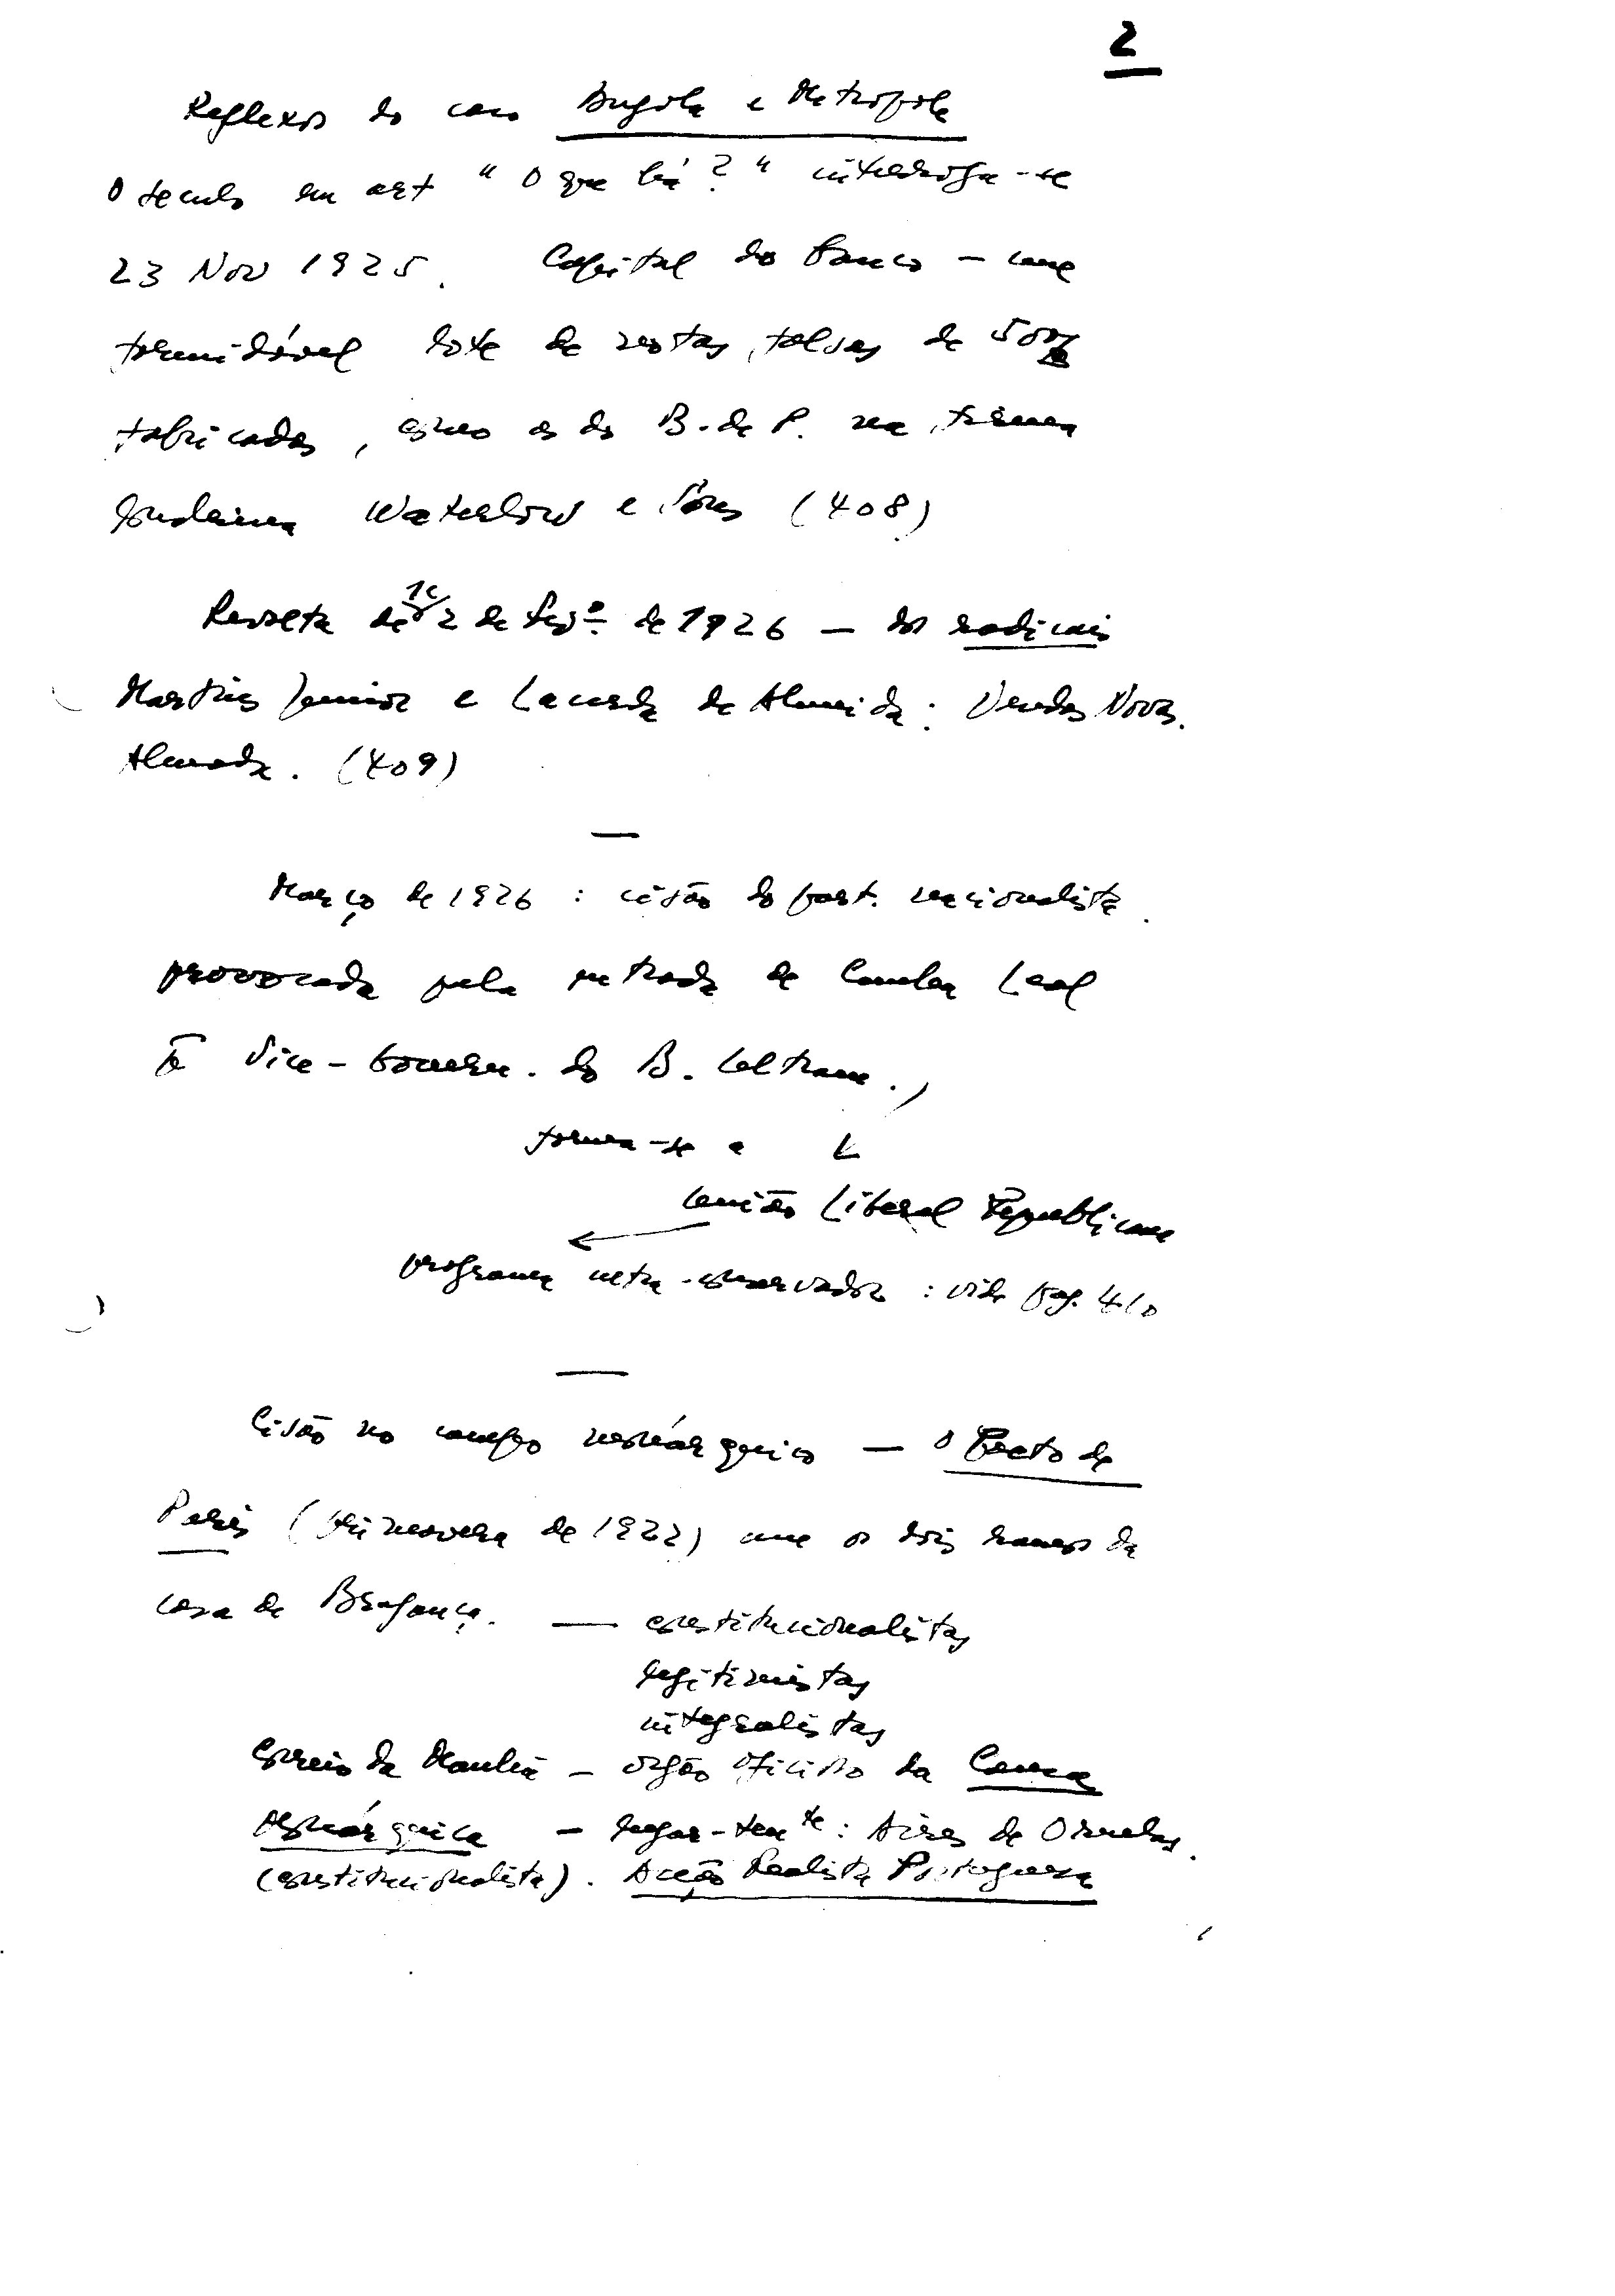 2
Reflexos do caso Angola e Metropole
O Seculo em art "O que há?" interroga-se
23 Nov 1925. Capital do Banco — uma
formidável lote de notas falsas de 500$
fabricadas, como as do B. de P. na firma
londrina Waterlow e Sons (408)
Revolta de 1 e 2 de Fevº de 1926 — dos radicais
Martins Junior e Lacerda de Almeida: Vendas Novas.
Almada. (409)
Março de 1926: cisão do part. nacionalista.
provocada pela entrada de Cunha Leal
Vice-Govern. do B. Ultram.,
forma-se a
União Liberal Republicana
programa ultra-conservador: vide pag. 410
Cisão no campo monárquico — o Pacto de
Paris (primavera de 1922) une os dois ramos da
casa de Bragança. — constitucionalistas
legitimistas
integralistas
Correio da Manhã — orgão oficioso da Causa
Monárquica — lugar-tente: Aires de Ornelas.
(constitucionalista). Acção Realista Portuguesa